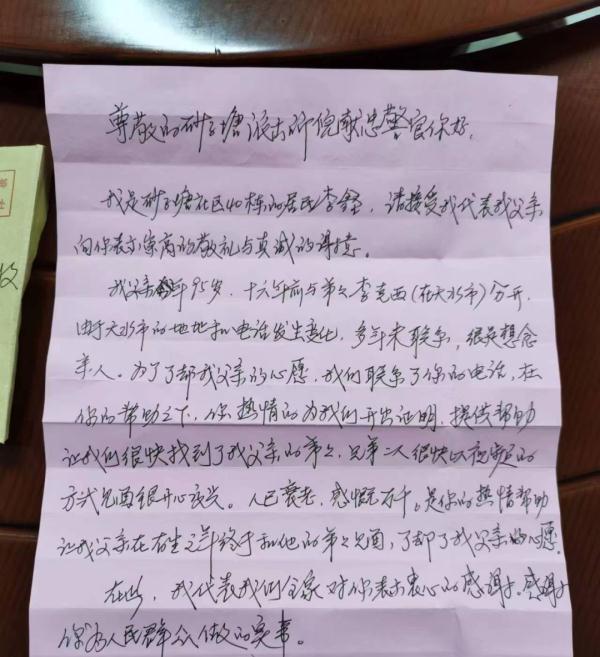 尊敬的砂子塘派出所倪献忠警官你好,
我是砂子塘社区40栋的居民李铎,请接受我代表我父亲
向你表示崇高的敬礼与真诚的谢意。
我父亲今年95岁,十六年前与弟弟李克西(在天水市)分开,
由于天水市的地址和电话发生变化,多年未联系,很是想念
亲人。为了了却我父亲的心愿,我们联系了你的电话,在
你的帮助之下,你热情的为我们开出证明,提供帮助
让我们很快找到了我父亲的弟弟,兄弟二人很快以视频的
方式见面很开心。人已衰老,感慨万千。是你的热情帮助
让我父亲在有生之年终于和他的弟弟见面,了却了我父亲的心愿。
在此,我代表我们全家对你表示衷心的感谢。感谢
你为人民群众做的实事。
收
邮